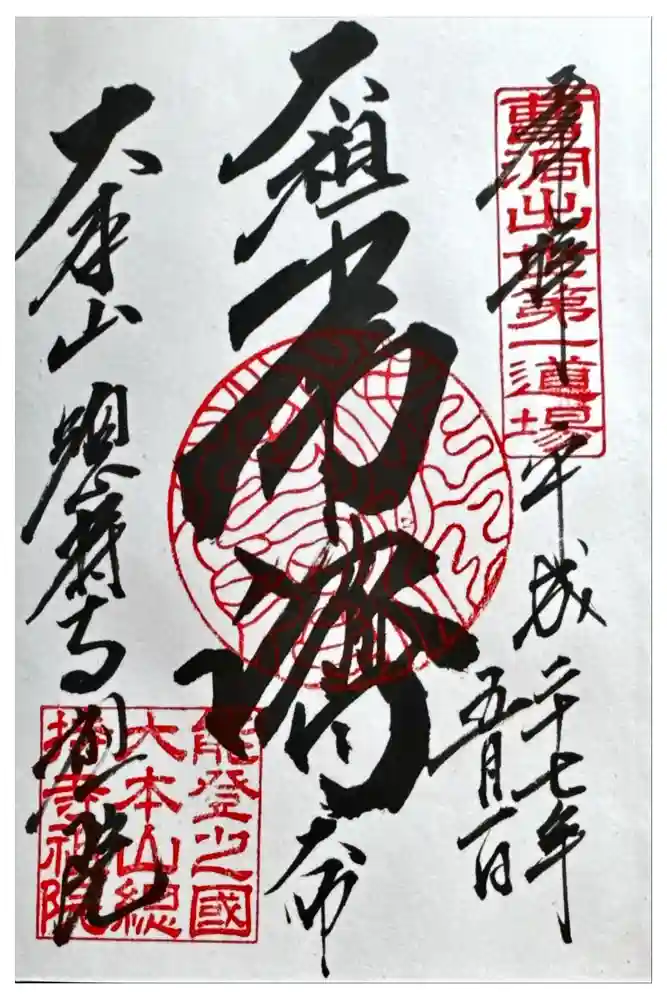 奉拝
曹洞出世第一道場
平成二十七年
五月一日
太祖常濟大師
大本山總持寺祖院
能登之國
大本山總
持寺祖院